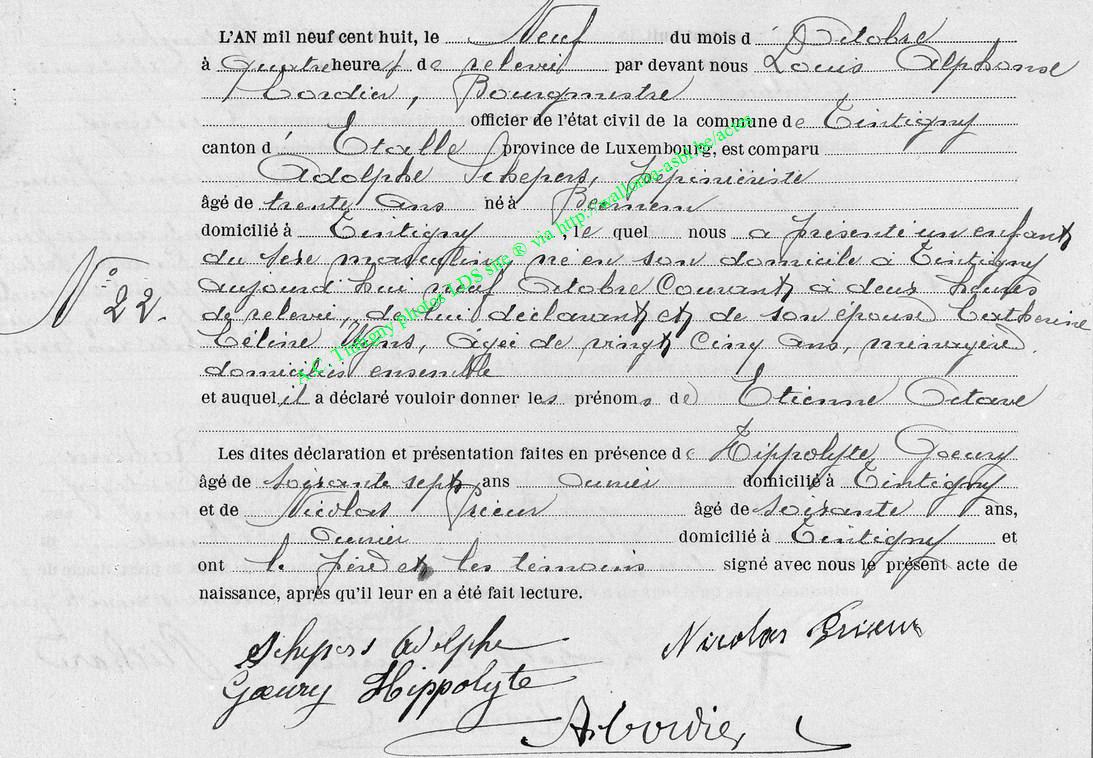 L'AN mil neuf cent huit, le Neuf du mois d'Octobre
à quatre heures de relevée par devant nous Louis Alphonse
Cordier, Bourgmestre
officier de l'état civil de la commune de Tintigny
canton d'Etalle province de Luxembourg, est comparu
Adolphe Schepers, Pépiniériste
âgé de trente ans né à Beernem
domicilié à Tintigny, le quel nous a présenté un enfant
du sexe masculin, né en son domicile à Tintigny
aujourd'hui neuf Octobre Courant à deux heures
de relevée, de lui déclarant et de son épouse Catherine
Céline Wyns, âgée de vingt cinq ans, ménagère
domiciliés ensemble
et auquel il a déclaré vouloir donner les prénoms de Etienne Octave
Les dites déclaration et présentation faites en présence de Hippolyte Goeury
âgé de soixante sept ans Ouvrier domicilié à Tintigny
et de Nicolas Prieur âgé de soixante ans,
Ouvrier domicilié à Tintigny et
ont le père et les témoins signé avec nous le présent acte de
naissance, après qu'il leur en a été fait lecture.
N° 22.
Schepers Adolphe
Nicolas Prieur
Goeury Hippolyte
A. Cordier
A.C. Tintigny photos LDS site ® via http://wallonia-asbl.be/actes